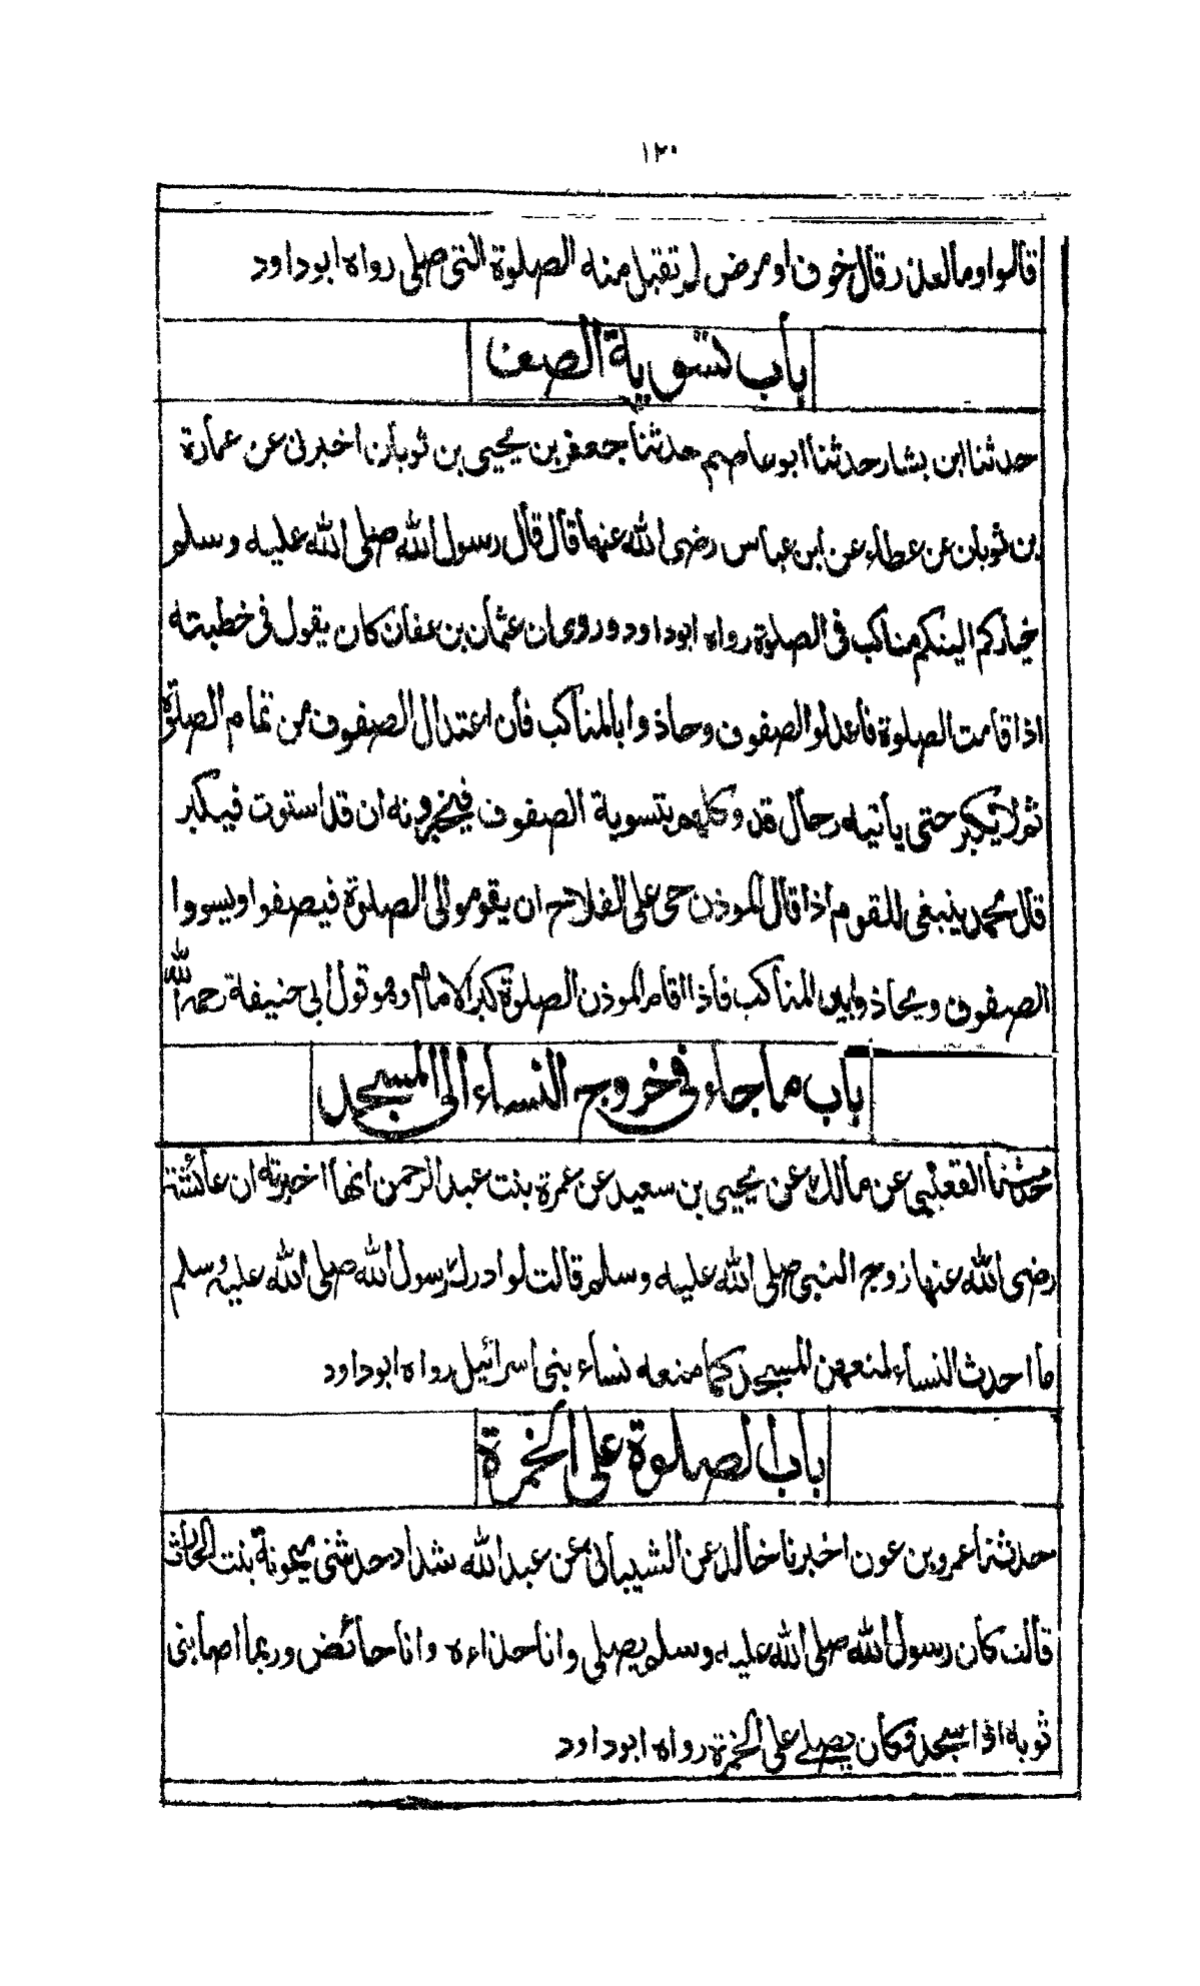 ١٢٠
قالوا وما العذر قال خوف او مرض لم تقبل منه الصلوة التى صلى رواه ابوداود
باب تسوية الصف
حدثنا ابن بشار حدثنا ابو عاصم حدثنا جعفر بن يحيى بن ثوبان اخبرنى عن عمارة
بن ثوبان عن عطاء عن ابن عباس رضى الله عنهما قال قال رسول الله صلى الله عليه وسلم
خياركم الينكم مناكب فى الصلوة رواه ابوداود وروى ان عثمان بن عفان كان يقول فى خطبته
اذا قامت الصلوة فاعدلو الصفوف وحاذوا بالمناكب فان اعتدال الصفوف من تمام الصلوة
ثم لا يكبر حتى ياتيه رجال قد وكلهم بتسوية الصفوف فيخبرونه ان قد استوت فيكبر
قال محمد ينبغى للقوم اذا قال الموذن حى على الفلاح ان يقومو الى الصلوة فيصفوا ويسووا
الصفوف ويحاذوا بين المناكب فاذا اقام الموذن الصلوة كبر الامام وهو قول ابى حنيفة رحمه الله
باب ما جاء فى خروج النساء الى المسجد
حدثنا القعنبى عن مالك عن يحيى بن سعيد عن عمرة بنت عبد الرحمن انها اخبرته ان عائشة
رضى الله عنها زوج النبى صلى الله عليه وسلم قالت لو ادرك رسول الله صلى الله عليه وسلم
ما احدث النساء لمنعهن المسجد كما منعه نساء بنى اسرائيل رواه ابوداود
باب الصلوة على الخمرة
حدثنا عمرو بن عون اخبرنا خالد عن الشيبانى عن عبد الله شداد حدثنى ميمونة بنت الحارث
قالت كان رسول الله صلى الله عليه وسلم يصلى وانا حذاءه وانا حائض وربما اصابنى
ثوبه اذا سجد وكان يصلے على الخمرة رواه ابوداود